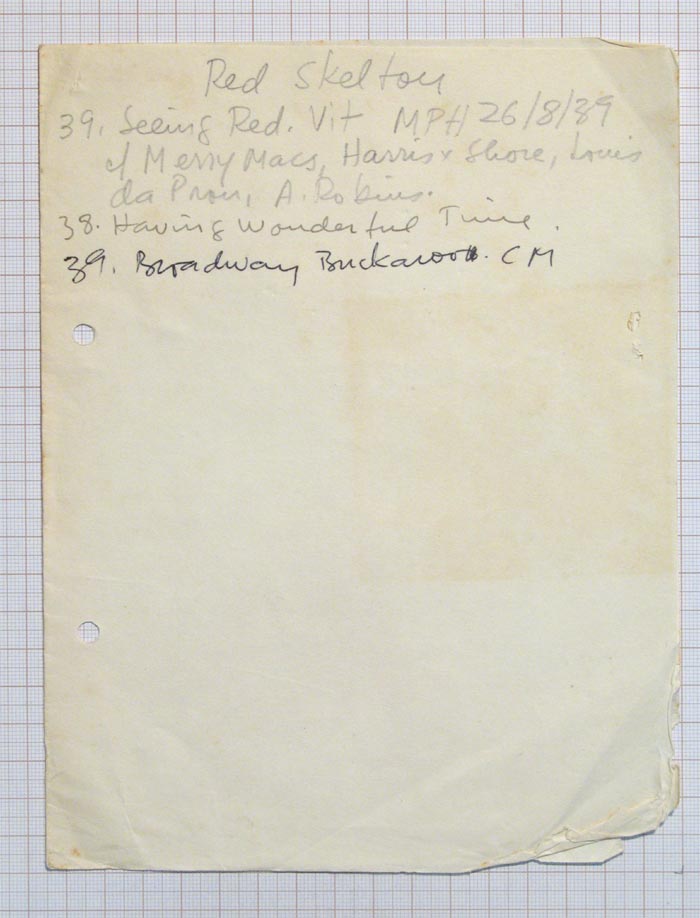 Red Skelton
39. Seeing Red. Vit MPH 26/8/39
c/ Merry Macs, Harris & Shore, Louis
da Pron, A. Robins.
38. Having Wonderful Time.
39. Broadway Buckaroo. CM